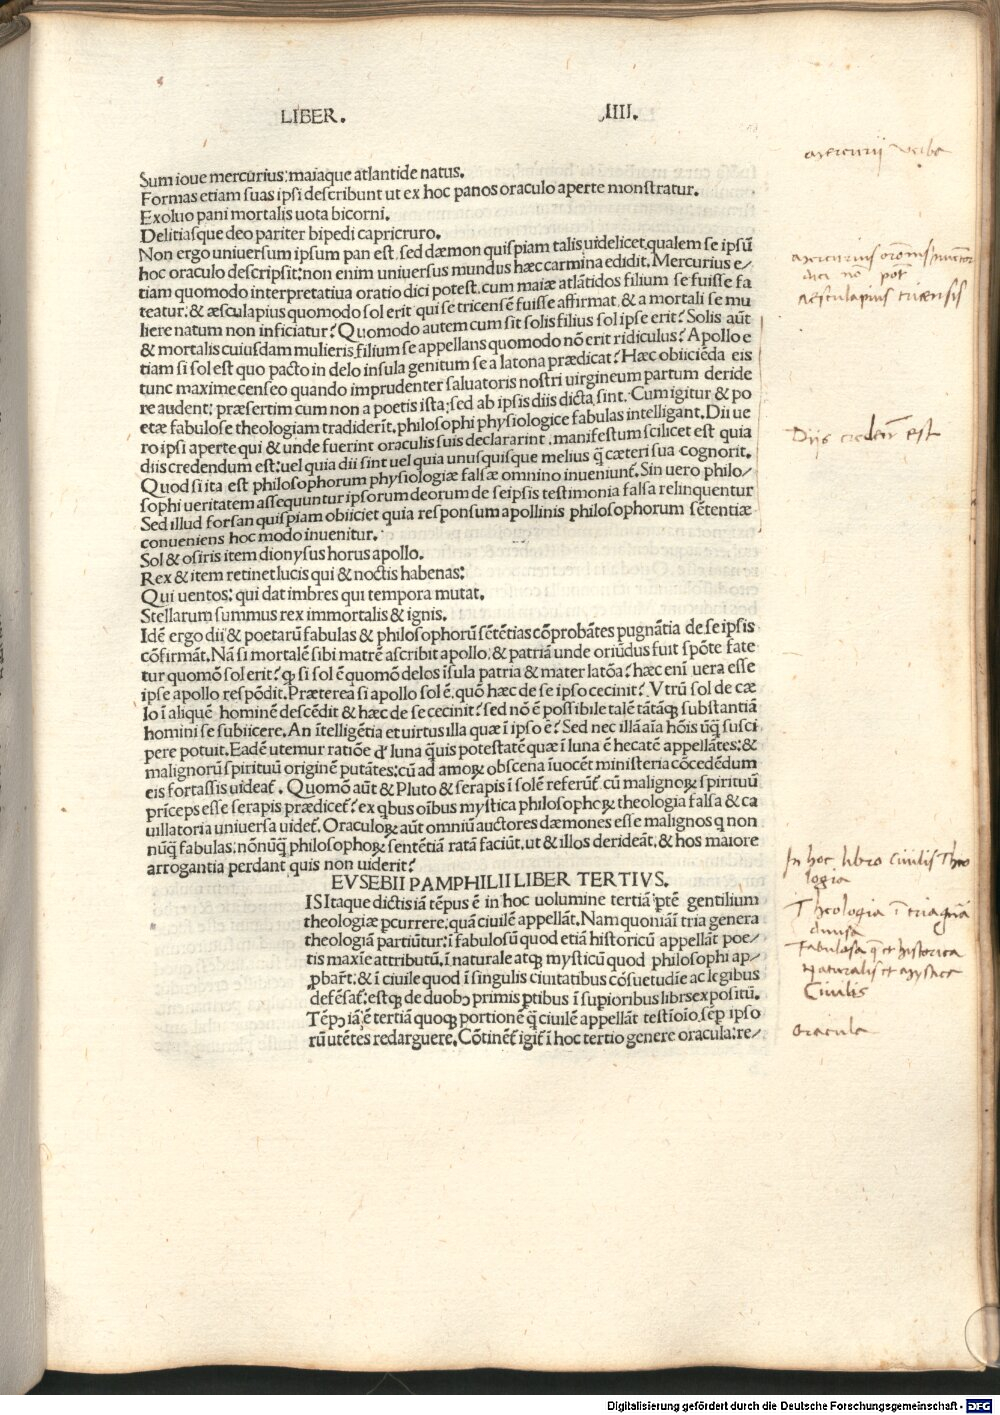 LIBER. .IIII.
Sum ioue mercurius: maiaque atlantide natus.
Formas etiam suas ipsi describunt ut ex hoc panos oraculo aperte monstratur.
Exoluo pani mortalis uota bicorni.
Delitiasque deo pariter bipedi capricruro.
Non ergo uniuersum ipsum pan est, sed dæmon quispiam talis uidelicet, qualem se ipsũ
hoc oraculo descripsit: non enim uniuersus mundus hæc carmina edidit. Mercurius e/
tiam quomodo interpretatiua oratio dici potest, cum maiæ atlãtidos filium se fuisse fa
teatur: & æsculapius quomodo sol erit qui se tricensẽ fuisse affirmat, & a mortali se mu
liere natum non inficiatur? Quomodo autem cum sit solis filius sol ipse erit? Solis aũt
& mortalis cuiusdam mulieris filium se appellans quomodo nõ erit ridiculus? Apollo e
tiam si sol est quo pacto in delo insula genitum se a latona prædicat? Hæc obiiciẽda eis
tunc maxime censeo quando imprudenter saluatoris nostri uirgineum partum deride
re audent: præsertim cum non a poetis ista: sed ab ipsis diis dicta sint. Cum igitur & po
etæ fabulose theologiam tradiderĩt, philosophi physiologice fabulas intelligant. Dii ue
ro ipsi aperte qui & unde fuerint oraculis suis declararint, manifestum scilicet est quia
diis credendum est: uel quia dii sint uel quia unusquisque melius q̃ cæteri sua cognorit.
Quod si ita est philosophorum physiologiæ falsæ omnino inueniunt̃. Sin uero philo/
sophi ueritatem assequuntur ipsorum deorum de seipsis testimonia falsa relinquentur
Sed illud forsan quispiam obiiciet quia responsum apollinis philosophorum sẽtentiæ
conueniens hoc modo inuenitur.
Sol & osiris item dionysus horus apollo.
Rex & item retinet lucis qui & noctis habenas:
Qui uentos: qui dat imbres qui tempora mutat.
Stellarum summus rex immortalis & ignis.
Idẽ ergo dii & poetarũ fabulas & philosophorũ sẽtẽtias cõprobãtes pugnãtia de se ipsis
cõfirmãt. Nã si mortalẽ sibi matrẽ ascribit apollo, & patriã unde oriũdus fuit spõte fate
tur quomõ sol erit? ꝙ si sol ẽ quomõ delos ĩsula patria & mater latõa? hæc enĩ uera esse
ipse apollo respõdit. Præterea si apollo sol ẽ, quõ hæc de se ipso cecinit? Vtrũ sol de cæ
lo ĩ aliquẽ hominẽ descẽdit & hæc de se cecinit? sed nõ ẽ possibile talẽ tãtãqꝫ substantiã
homini se subiicere. An ĩtelligẽtia et uirtus illa quæ ĩ ipso ẽ? Sed nec illã aĩa hõis ũq̃ susci
pere potuit. Eadẽ utemur ratiõe d' luna q̃uis potestatẽ quæ ĩ luna ẽ hecatẽ appellãtes: &
malignorũ spirituũ originẽ putãtes: cũ ad amoꝝ obscena ĩuocẽt ministeria cõcedẽdum
eis fortassis uideat̃. Quomõ aũt & Pluto & serapis ĩ solẽ referũt̃ cũ malignoꝝ spirituũ
prĩceps esse serapis prædicet̃? ex qbus oĩbus mystica philosophoꝝ theologia falsa & ca
uillatoria uniuersa uidet̃. Oraculoꝝ aũt omniũ auctores dæmones esse malignos q non
nũq̃ fabulas: nõnũq̃ philosophoꝝ sentẽtiã ratã faciũt, ut & illos derideãt, & hos maiore
arrogantia perdant quis non uiderit?
EVSEBII PAMPHILII LIBER TERTIVS.
IS Itaque dictis iã tẽpus ẽ in hoc uolumine tertiã ꝑtẽ gentilium
theologiæ ꝑcurrere: quã ciuilẽ appellãt. Nam quoniã ĩ tria genera
theologiã partiũtur: ĩ fabulosũ quod etiã historicũ appellãt poe/
tis maxĩe attributũ, ĩ naturale atqꝫ mysticũ quod philosophi ap/
ꝓbãrt̃: & ĩ ciuile quod ĩ singulis ciuitatibus cõsuetudĩe ac legibus
defẽsat̃: estqꝫ de duobꝰ primis ꝑtibus ĩ superioribus libris expositũ.
Tẽpꝰ iã ẽ tertiã quoqꝫ portionẽ q̃ ciuilẽ appellãt testĩoĩo sẽp ipso
rũ utẽtes redarguere. Cõtinẽt̃ igit̃ ĩ hoc tertio genere oracula: re/
Mercurij verba
Diis credendũ est
In hoc libro Ciuilis Theo
logia
Theologia ĩ tria gña
diuisa
Fabulosa q̃ et historica
Naturalis et mystica
Ciuilis
oracula
Digitalisierung gefördert durch die Deutsche Forschungsgemeinschaft - DFG